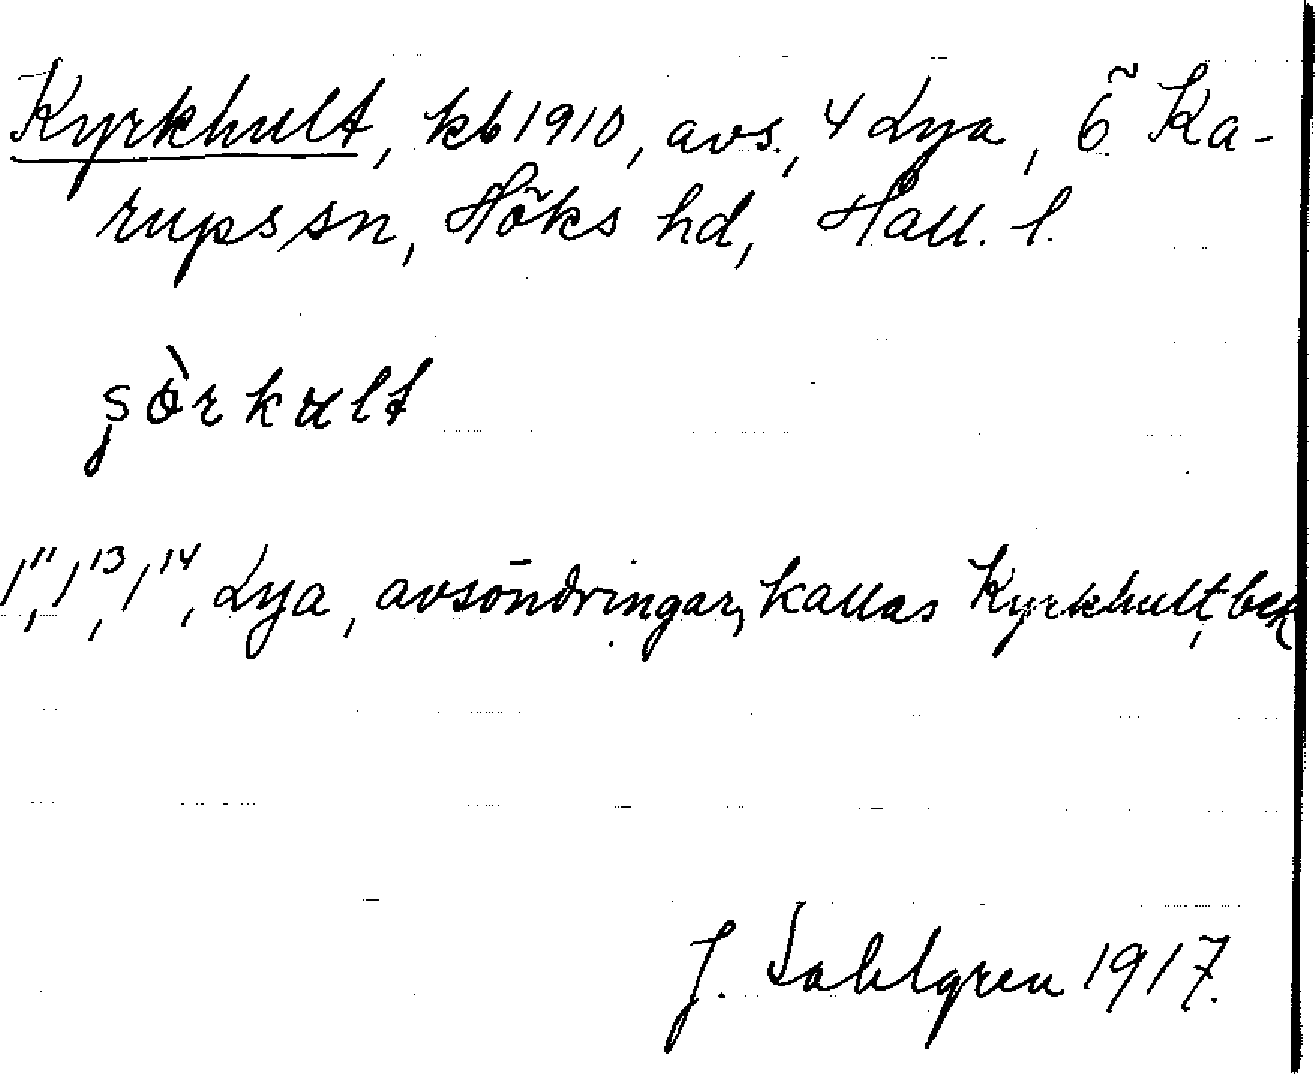 Kyrkhult, kb 1910, avs., 4 Lya, Ö. Ka-
rups sn, Höks hd, Hall. l.
şòrkult
1¹¹, 1¹³, 1¹⁴, Lya, avsöndringar, kallas Kyrkhult, bek
J. Sahlgren 1917.